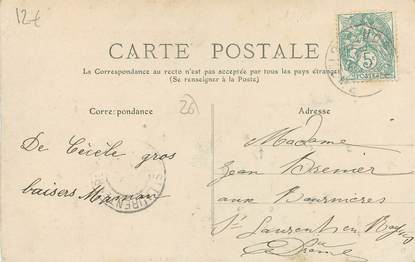 12€
CARTE POSTALE
La Correspondance au recto n'est pas acceptée par tous les pays étrangers
(Se renseigner à la Poste)
Correspondance
26
Adresse
5c
POSTES
De Cécile gros
baisers Maman
Madame
Jean Bremier
aux Baumières
St Laurent en Royans
Drôme
ST LAURENT